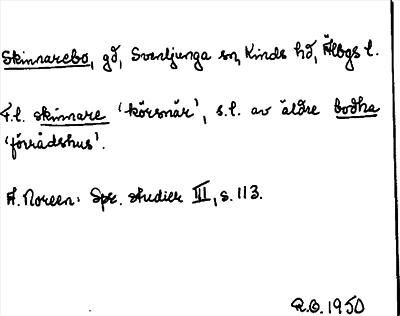 Skinnarebo, gd, Svenljunga sn, Kinds hd, Älvbgs l.
F.l. skinnare 'körsnär', s.l. av äldre bodha
'förrådshus'.
A. Noreen: Spr. studier III, s. 113.
R.O. 1950